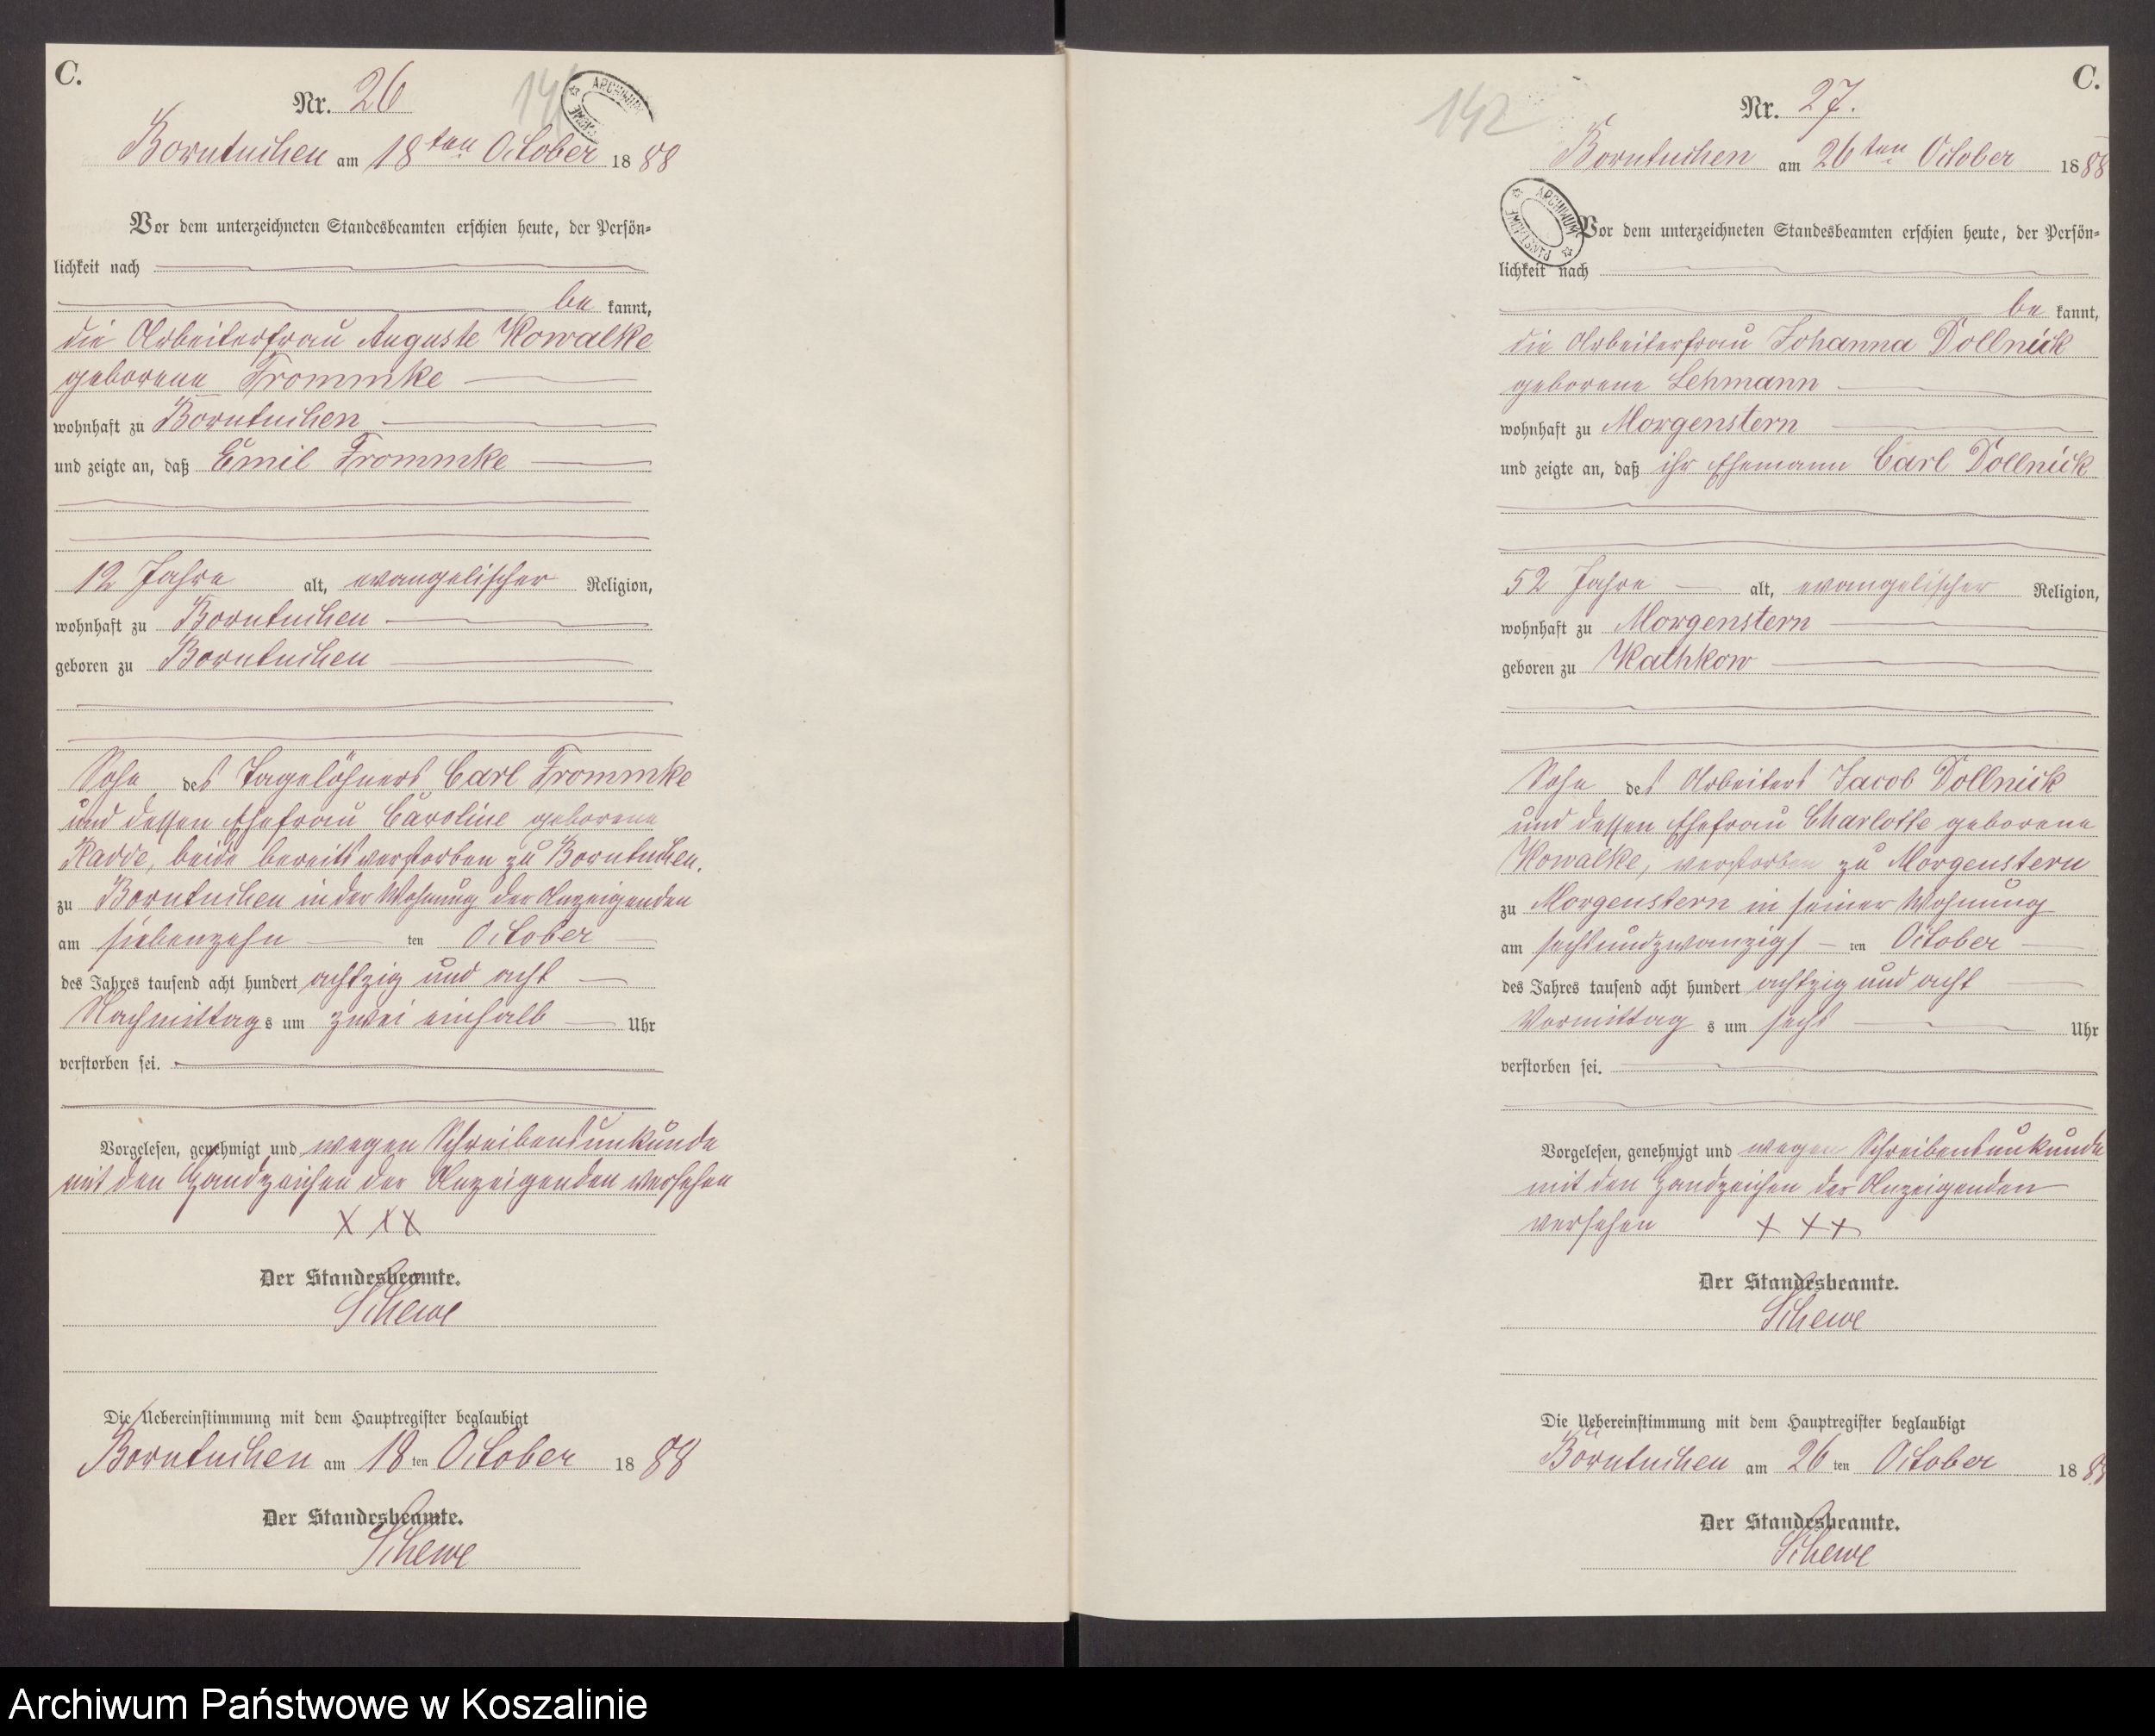 C.
Nr. 26
Borntuchen am 18ten October 1888
Vor dem unterzeichneten Standesbeamten erschien heute, der Persön-
lichkeit nach
be kannt,
die Arbeiterfrau Auguste Kowalke
geborene Trommke
wohnhaft zu Borntuchen
und zeigte an, daß Emil Trommke
12 Jahre alt, evangelischer Religion,
wohnhaft zu Borntuchen
geboren zu Borntuchen
Sohn des Tagelöhners Carl Trommke
und dessen Ehefrau Caroline geborene
Radde, beide bereits verstorben zu Borntuchen.
zu Borntuchen in der Wohnung der Anzeigenden
am siebenzehn ten October
des Jahres tausend acht hundert achtzig und acht
Nachmittags um zwei einhalb Uhr
verstorben sei.
Vorgelesen, genehmigt und wegen Schreibensunkunde
mit den Handzeichen der Anzeigenden versehen
X X X
Der Standesbeamte.
Schewe
Die Uebereinstimmung mit dem Hauptregister beglaubigt
Borntuchen am 18 ten October 1888
Der Standesbeamte.
Schewe
C.
142
Nr. 27.
Borntuchen am 26ten October 1888
ARCHIWUM PAŃSTWOWE
Vor dem unterzeichneten Standesbeamten erschien heute, der Persön-
lichkeit nach
be kannt,
die Arbeiterfrau Johanna Dollnick
geborene Lehmann
wohnhaft zu Morgenstern
und zeigte an, daß ihr Ehemann Carl Dollnick
52 Jahre alt, evangelischer Religion,
wohnhaft zu Morgenstern
geboren zu Kathkow
Sohn des Arbeiters Jacob Dollnick
und dessen Ehefrau Charlotte geborene
Kowalke, verstorben zu Morgenstern
zu Morgenstern in seiner Wohnung
am sechsundzwanzigs ten October
des Jahres tausend acht hundert achtzig und acht
Vormittag s um sechs Uhr
verstorben sei.
Vorgelesen, genehmigt und wegen Schreibensunkunde
mit den Handzeichen der Anzeigenden
versehen X X X
Der Standesbeamte.
Schewe
Die Uebereinstimmung mit dem Hauptregister beglaubigt
Borntuchen am 26 ten October 1888
Der Standesbeamte.
Schewe
Archiwum Państwowe w Koszalinie